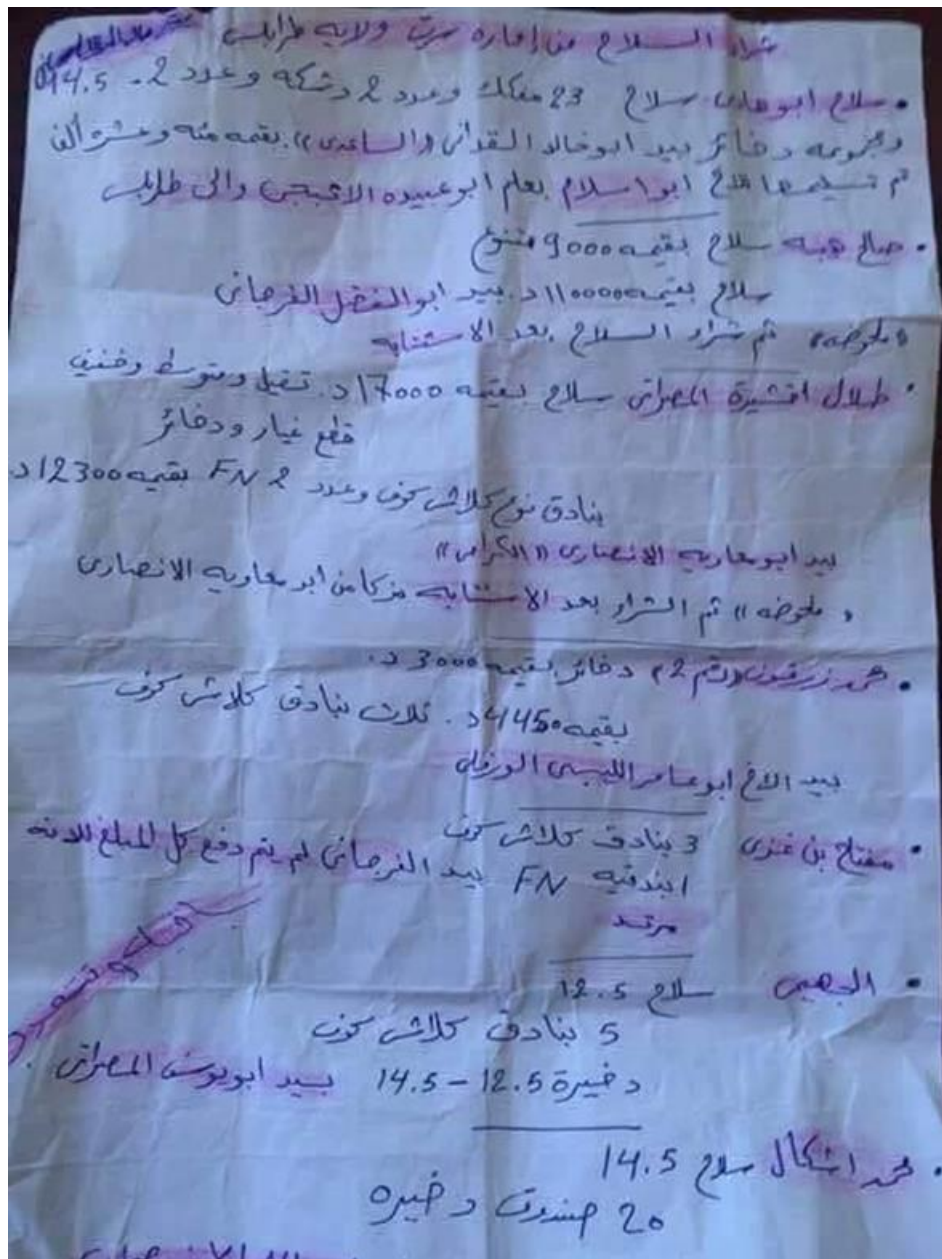 شراء السلاح من إمارة سرت ولاية طرابلس
• سلاح ابو هادي سلاح 23 مفكك وعدد 2 دشكه وعدد 2 - 14.5
ومجموعه دخائر بيد ابو خالد القدافي (الساعدي) بقيمه مئه وعشره ألف
تم تسليمها للاخ ابو اسلام بعلم ابو عبيده الاثبجي والي طرابلس
• صالح هبه سلاح بقيمه 9000 متنوع
سلاح بقيمه 110000 د. بيد ابو الفضل الفرجاني
«ملحوضه» تم شراء السلاح بعد الاستتابه
• طلال افشيرة المصراتي سلاح بقيمه 17000 د. تقيل ومتوسط وخفيف
قطع غيار ودخائر
بنادق نوع كلاش كوف وعدد 2 FN بقيمه 12300 د.
بيد ابو معاويه الانصاري «الكرامي»
«ملحوضه» تم الشراء بعد الاستتابه مزكا من ابو معاويه الانصاري
• محمد زرقون (رقم 2) دخائر بقيمه 3000 د.
بقيمه 4450 د. تلات بنادق كلاش كوف
بيد الاخ ابو عامر الليبي الورفلي
• مفتاح بن غزي 3 بنادق كلاش كوف
1 بندقيه FN بيد الفرجاني لم يتم دفع كل المبلغ للانه
مرتد
• الجهيمي سلاح 12.5
5 بنادق كلاش كوف
دخيرة 12.5 - 14.5 بيد ابو يوسف المصراتي.
• محمد اشكال سلاح 14.5
20 صندوق دخيره